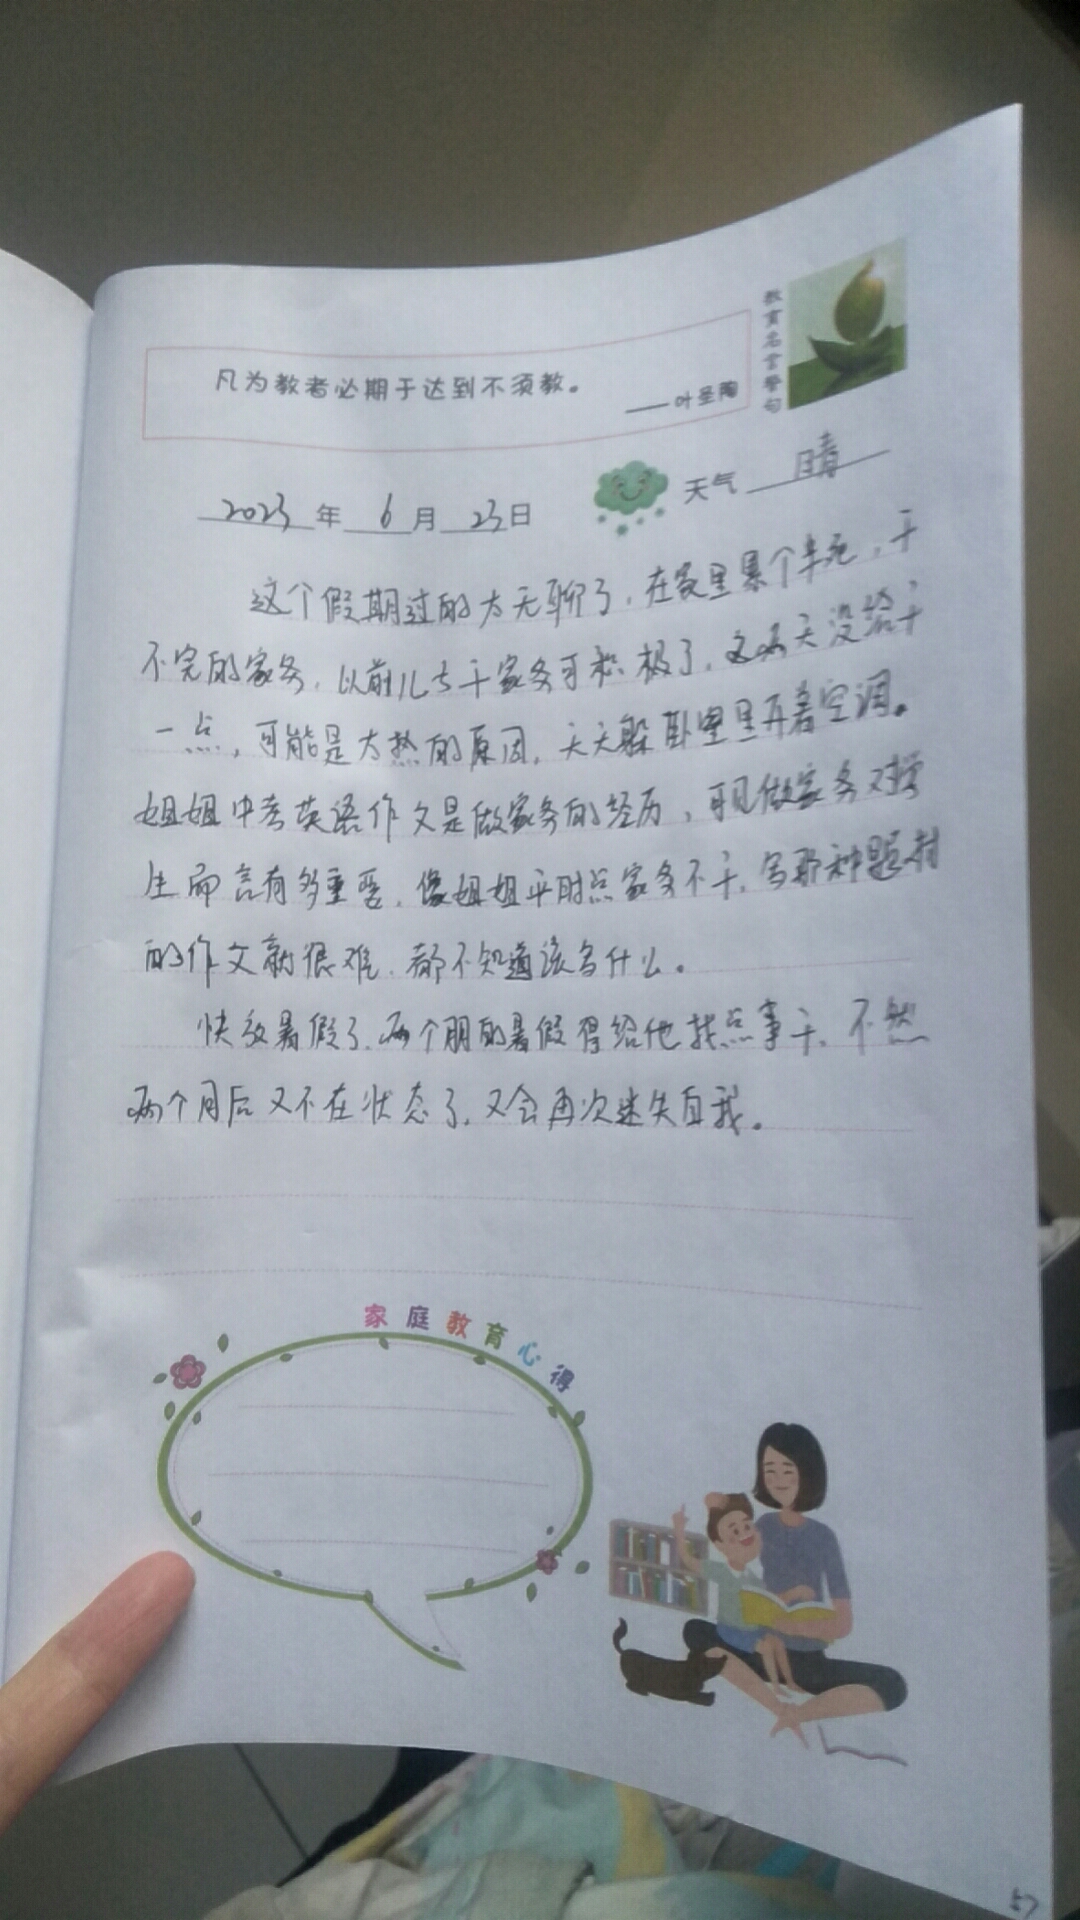 教育名言警句
凡为教者必期于达到不须教。
——叶圣陶
2023年 6月 23日 天气 晴
这个假期过的太无聊了,在家里累个半死,干
不完的家务,以前儿子干家务可积极了,这两天没给干
一点,可能是太热的原因,天天躲卧室里开着空调。
姐姐中考英语作文是做家务的经历,可见做家务对学
生而言有多重要,像姐姐平时点家务不干,写那种题材
的作文就很难,都不知道该写什么。
快放暑假了,两个月的暑假得给他找点事干,不然
两个月后又不在状态了,又会再次迷失自我。
家庭教育心得
57